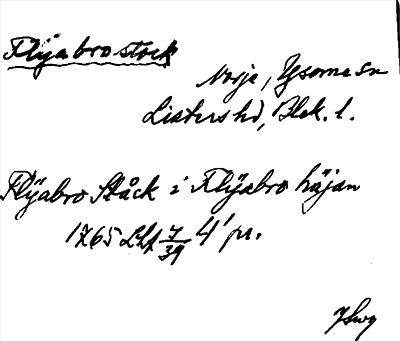 Flÿabrostock
Norje, Ysane sn
Listers hd, Blek. l.
Flÿabro Ståck i Flÿabro häjan
1765 LLA 7/39 4' pr.